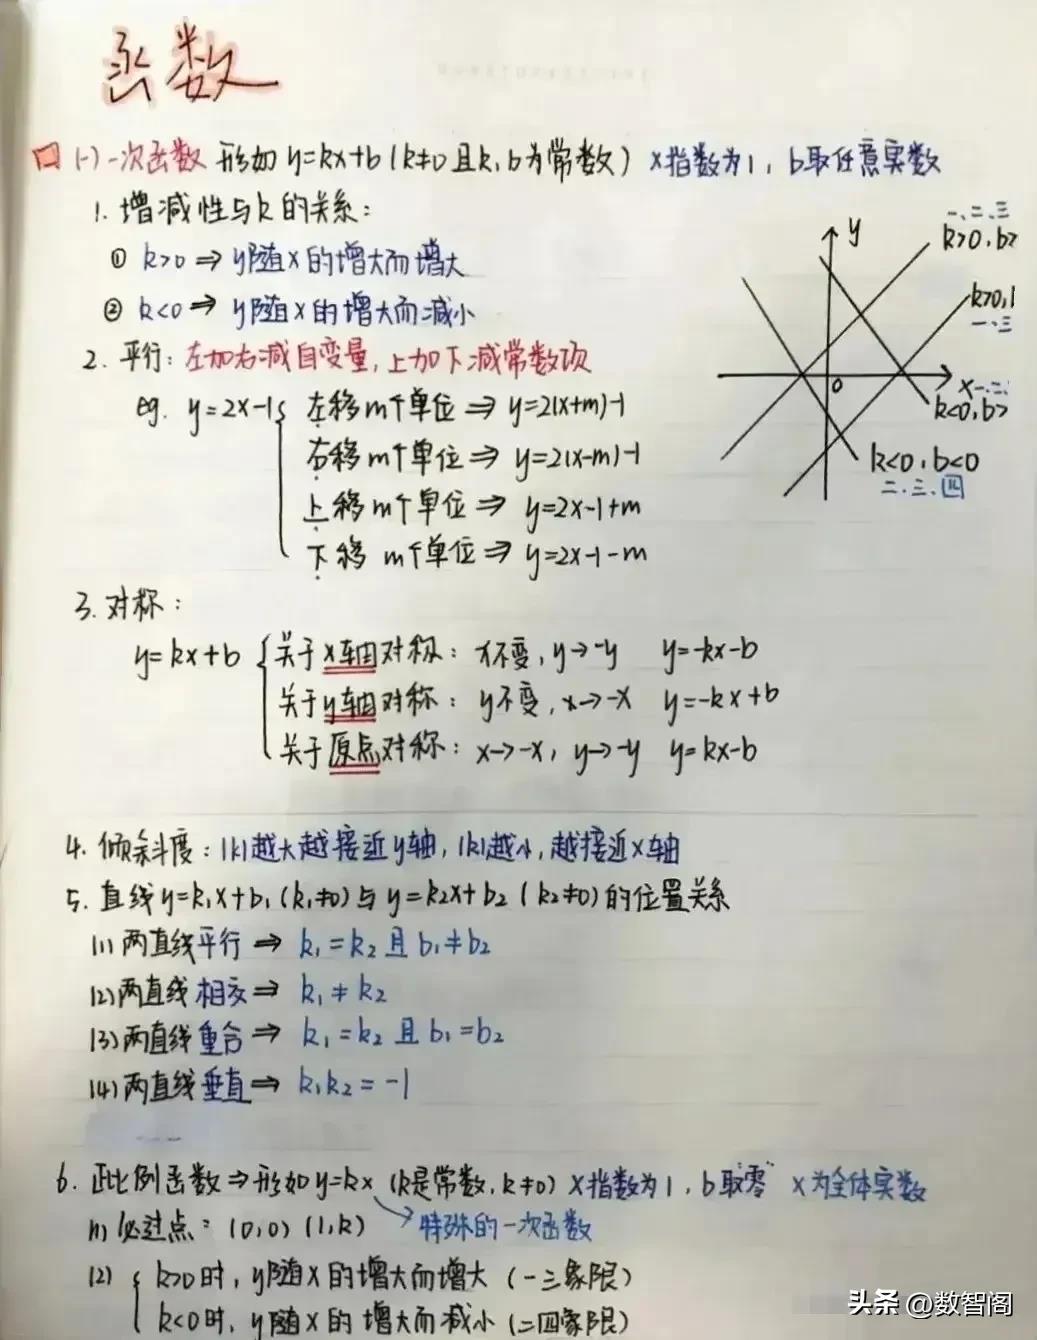 函数
(一)一次函数 形如 y=kx+b (k≠0且k,b为常数) x指数为1, b取任意实数
1. 增减性与k的关系:
① k>0 ⇒ y随x的增大而增大
② k<0 ⇒ y随x的增大而减小
2. 平行: 左加右减自变量, 上加下减常数项
eg. y=2x-1 { 左移m个单位 ⇒ y=2(x+m)-1
右移m个单位 ⇒ y=2(x-m)-1
上移m个单位 ⇒ y=2x-1+m
下移m个单位 ⇒ y=2x-1-m
y
一、二、三
k>0, b>
k>0,
一、三
0
x
一、二、
k<0, b>
k<0, b<0
二、三、四
3. 对称:
y=kx+b { 关于x轴对称: x不变, y→-y y=-kx-b
关于y轴对称: y不变, x→-x y=-kx+b
关于原点对称: x→-x, y→-y y=kx-b
4. 倾斜度: |k|越大越接近y轴, |k|越小, 越接近x轴
5. 直线y=k₁x+b₁(k₁≠0)与y=k₂x+b₂(k₂≠0)的位置关系
(1)两直线平行 ⇒ k₁=k₂且b₁≠b₂
(2)两直线相交 ⇒ k₁≠k₂
(3)两直线重合 ⇒ k₁=k₂且b₁=b₂
(4)两直线垂直 ⇒ k₁k₂=-1
6. 正比例函数 ⇒ 形如y=kx (k是常数, k≠0) x指数为1, b取"零" x为全体实数
(1) 必过点: (0,0) (1,k) 特殊的一次函数
(2) { k>0时, y随x的增大而增大 (一三象限)
k<0时, y随x的增大而减小 (二四象限)
头条 @数智阁